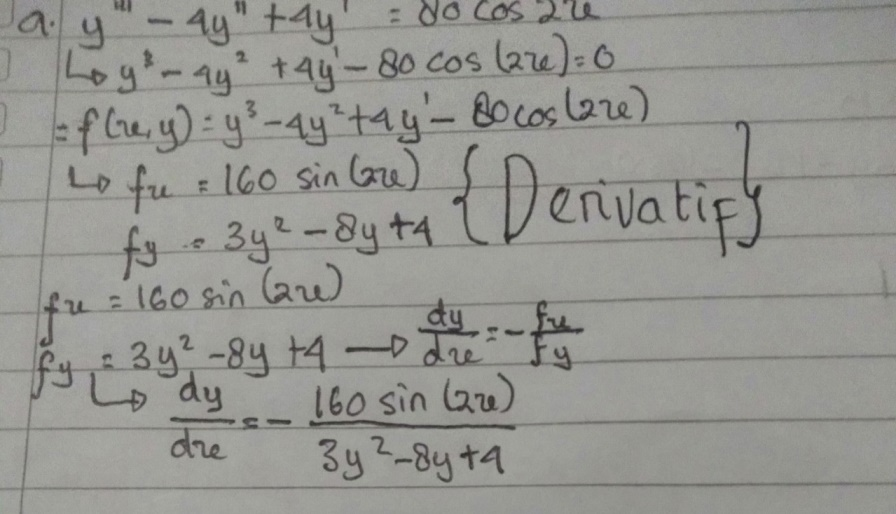 a. y''' - 4y'' + 4y' = 80 cos 2x
↳ y³ - 4y² + 4y' - 80 cos (2x) = 0
= f(x,y) = y³ - 4y² + 4y' - 80 cos (2x)
↳ fx = 160 sin (2x)
fy = 3y² - 8y + 4 { Derivatif }
fx = 160 sin (2x)
fy = 3y² - 8y + 4 → dy/dx = - fx/fy
↳ dy/dx = - 160 sin (2x) / 3y² - 8y + 4